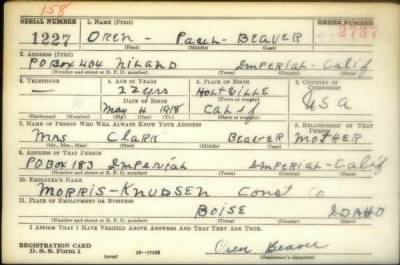 158
SERIAL NUMBER 1. NAME (Print) ORDER NUMBER
1227 OREN - PAUL - BEAVER 2737
(First) (Middle) (Last)
2. ADDRESS (Print)
PO BOX 404 NILAND IMPERIAL - CALIF
(Number and street or R. F. D. number) (Town) (County) (State)
3. TELEPHONE 4. AGE IN YEARS 5. PLACE OF BIRTH 6. COUNTRY OF CITIZENSHIP
— 22 yrs HOLTVILLE
DATE OF BIRTH (Town or county) USA
May 4 1918 CALIF
(Exchange) (No.) (Mo.) (Day) (Yr.) (State or country)
7. NAME OF PERSON WHO WILL ALWAYS KNOW YOUR ADDRESS 8. RELATIONSHIP OF THAT PERSON
MRS CLARA BEAVER MOTHER
(Mr., Mrs., Miss) (First) (Middle) (Last)
9. ADDRESS OF THAT PERSON
PO BOX 183 IMPERIAL IMPERIAL - CALIF
(Number and street or R. F. D. number) (Town) (County) (State)
10. EMPLOYER'S NAME
MORRIS-KNUDSEN Const Co
11. PLACE OF EMPLOYMENT OR BUSINESS
BOISE IDAHO
(Number and street or R. F. D. number) (Town) (County) (State)
I AFFIRM THAT I HAVE VERIFIED ABOVE ANSWERS AND THAT THEY ARE TRUE.
REGISTRATION CARD
D. S. S. Form 1 (over) Oren Beaver
(Registrant's signature)